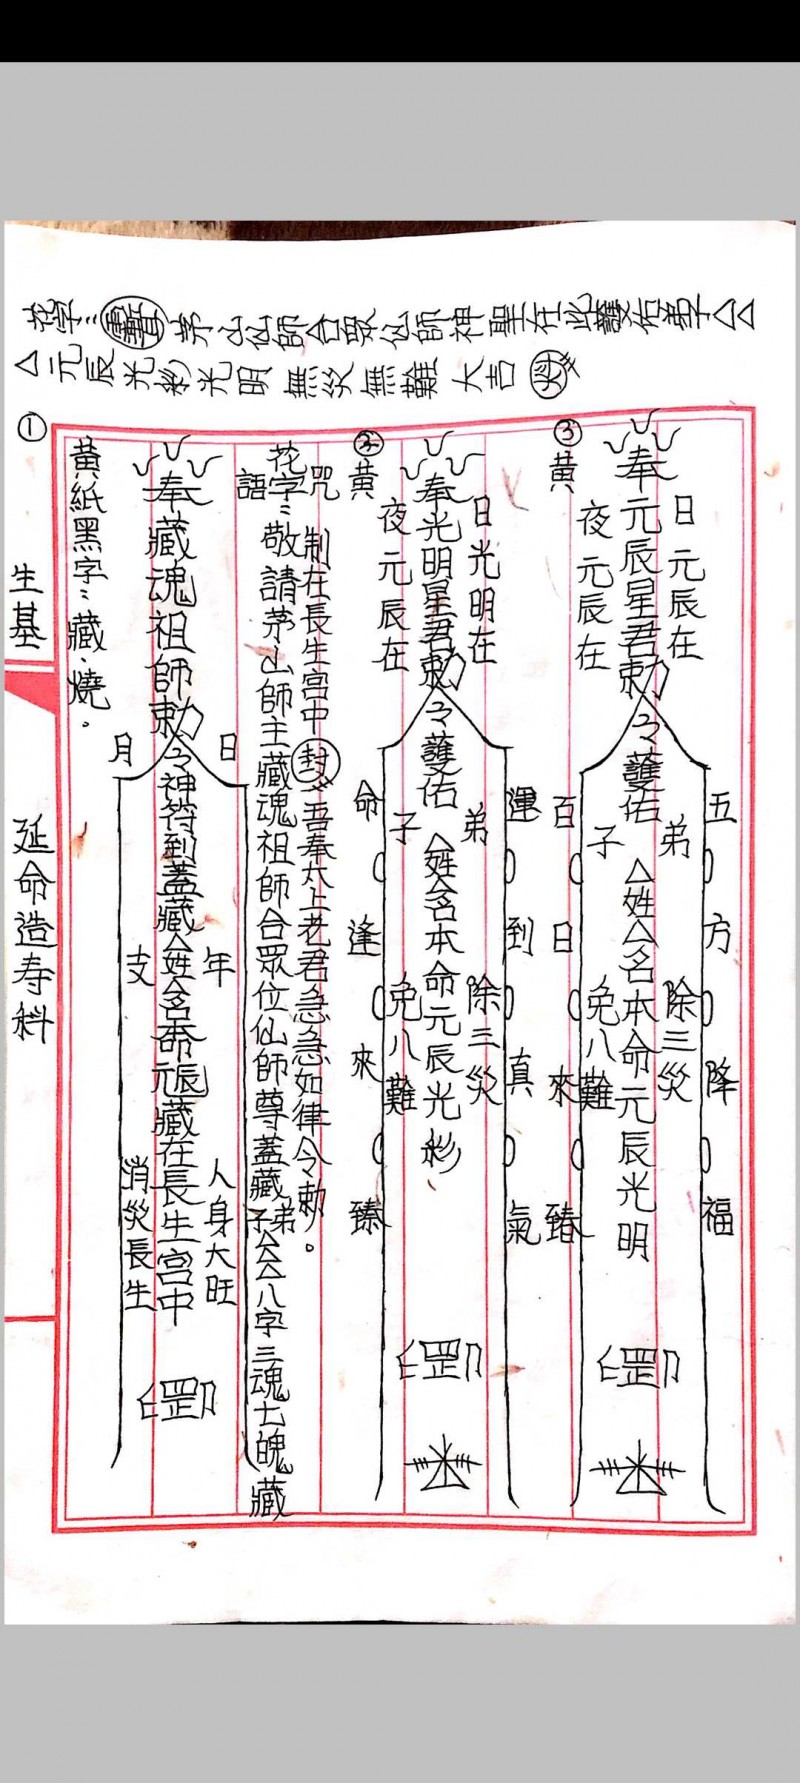 花字：茅山仙師合眾仙師神聖在此護佑弟子△△
△元辰光彩光明無災無難大吉
③
黃
奉元辰星君勅令護佑
日元辰在
夜元辰在
弟子
△姓△名本命元辰光明
除三災
免八難
五方降福
百日來臻
罡
②
黃
奉光明星君勅令護佑
日光明在
夜元辰在
弟子
△姓△名本命元辰光彩
除三災
免八難
運到真氣
命逢來臻
罡
花字：
咒語
敬請茅山師主藏魂祖師合眾位仙師尊蓋藏弟子△△△八字三魂七魄藏
制在長生宮中封吾奉太上老君急急如律令勅。
①
奉藏魂祖師勅令神符到蓋藏△姓△名本命元辰藏在長生宮中
日
月
年
支
人身大旺
消災長生
罡
黃紙黑字：藏、燒。
生基
延命造寿科